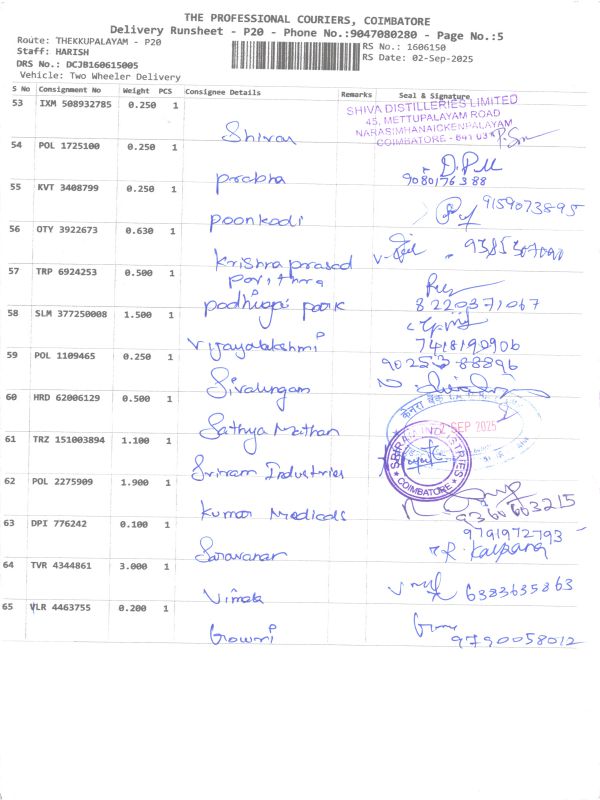 THE PROFESSIONAL COURIERS, COIMBATORE
Delivery Runsheet - P20 - Phone No.:9047080280 - Page No.:5
Route: THEKKUPALAYAM - P20
RS No.: 1606150
Staff: HARISH
RS Date: 02-Sep-2025
DRS No.: DCJB160615005
Vehicle: Two Wheeler Delivery
S No Consignment No Weight PCS Consignee Details Remarks Seal & Signature
53 IXM 508932785 0.250 1 Shivan
SHIVA DISTILLERIES LIMITED
45, METTUPALAYAM ROAD
NARASIMHANAICKENPALAYAM
COIMBATORE - 641 031
54 POL 1725100 0.250 1 prabha 9080176388
55 KVT 3408799 0.250 1 poonkodi 9159073895
56 OTY 3922673 0.630 1 Krishna prasad
57 TRP 6924253 0.500 1 pavithra
podhigai park 8220371067
58 SLM 377250008 1.500 1 Vijayalakshmi 7418190906
59 POL 1109465 0.250 1 Sivalingam 90253 88896
60 HRD 62006129 0.500 1 Sathya Mathan
केनरा बैंक
2 SEP 2025
61 TRZ 151003894 1.100 1 Sriram Industries
SRIRAM INDUSTRIES
COIMBATORE
62 POL 2275909 1.900 1 Kumar Medicals
63 DPI 776242 0.100 1 Saravanan 9791972793
R Kalpana
64 TVR 4344861 3.000 1 Vimala 6383635863
65 VLR 4463755 0.200 1 Gowri 9790058012